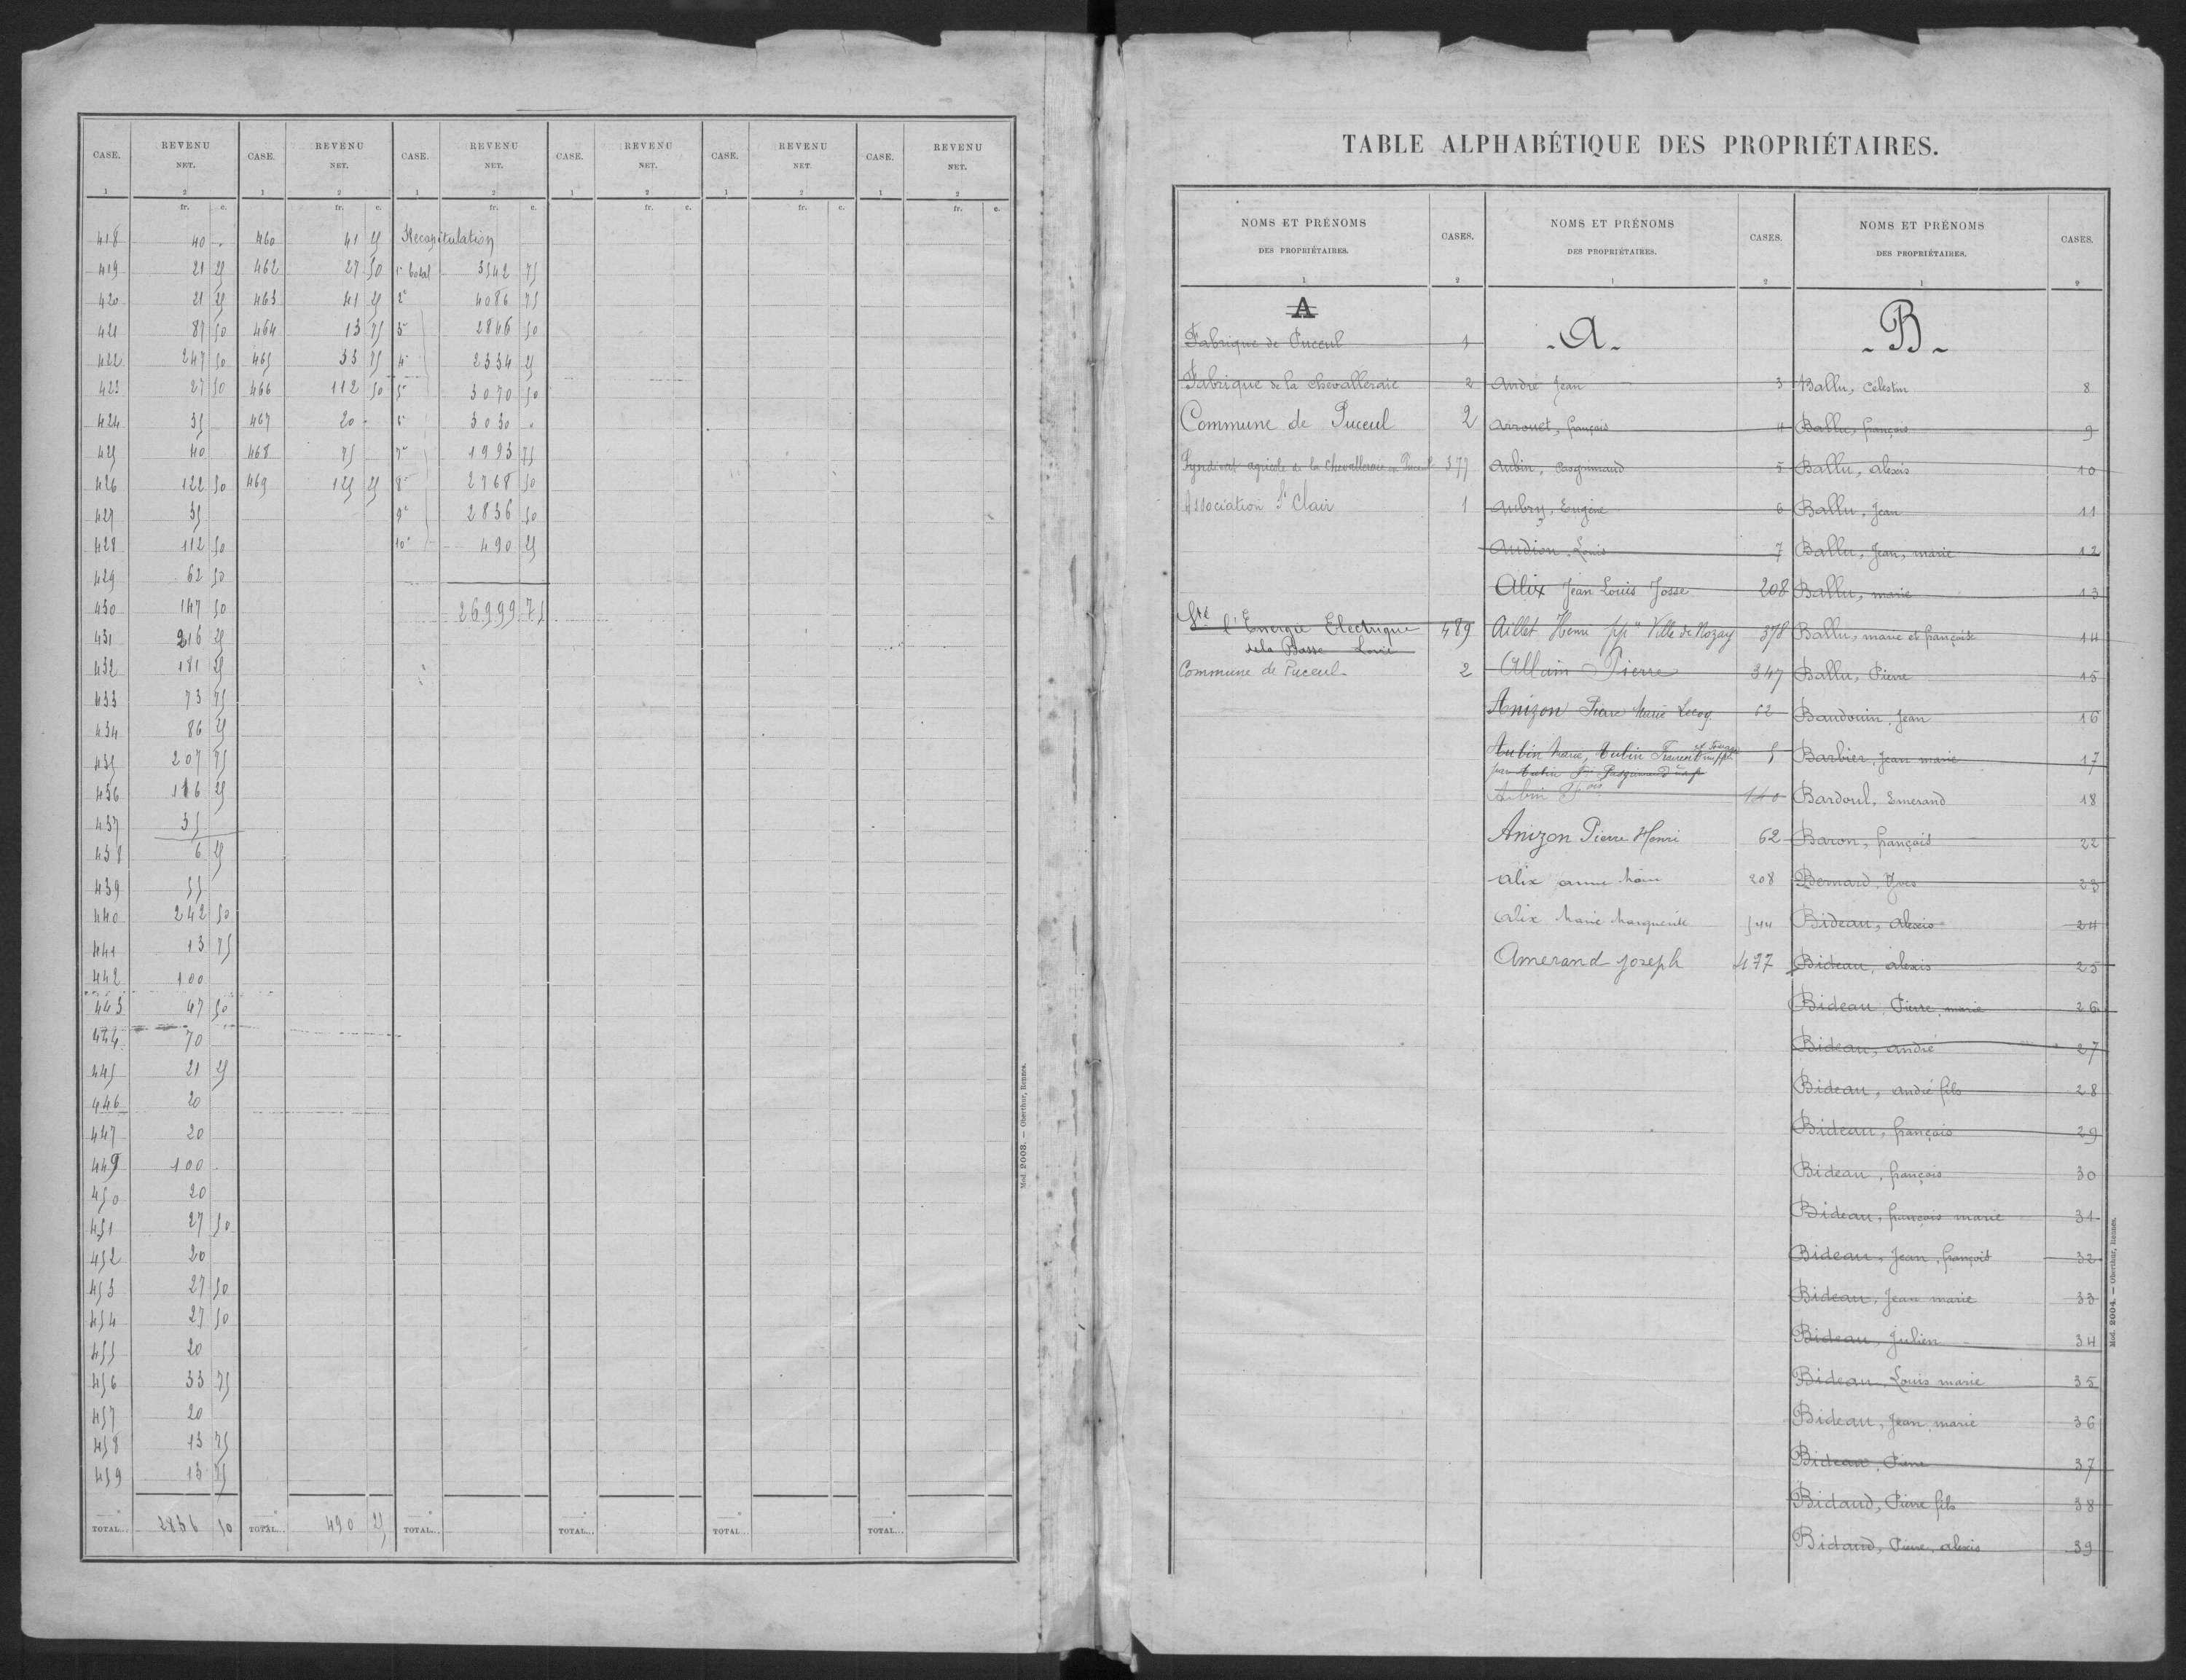 CASE. REVENU NET. CASE. REVENU NET. CASE. REVENU NET. CASE. REVENU NET. CASE. REVENU NET. CASE. REVENU NET.
1 2 1 2 1 2 1 2 1 2 1 2
fr. c. fr. c. fr. c. fr. c. fr. c. fr. c.
418 40 " 460 41 25 Recapitulation
419 21 25 462 27 50 1er total 3542 75
420 21 25 463 41 25 2e 4086 75
421 87 50 464 13 75 3e 2846 50
422 247 50 465 33 75 4e 2334 25
423 27 50 466 112 50 5e 3070 50
424 35 467 20 - 6e 3030 "
425 40 468 75 7e 1993 75
426 122 50 469 125 25 8e 2768 50
427 35 9e 2836 50
428 112 50 10e 490 25
429 62 50
430 147 50 26999 75
431 216 25
432 181 25
433 73 75
434 86 25
435 207 75
436 116 25
437 35
438 6 25
439 55
440 242 50
441 13 75
442 100
443 47 50
444 70
445 21 25
446 20
447 20
449 100
450 20
451 27 50
452 20
453 27 50
454 27 50
455 20
456 33 75
457 20
458 13 75
459 13 75
TOTAL... 2836 50 TOTAL... 490 25 TOTAL... TOTAL... TOTAL... TOTAL...
Mod. 2003. — Oberthur, Rennes.
TABLE ALPHABÉTIQUE DES PROPRIÉTAIRES.
NOMS ET PRÉNOMS DES PROPRIÉTAIRES. CASES. NOMS ET PRÉNOMS DES PROPRIÉTAIRES. CASES. NOMS ET PRÉNOMS DES PROPRIÉTAIRES. CASES.
1 2 1 2 1 2
A
Fabrique de Puceul 1
Fabrique de la chevalleraie 2
Commune de Puceul 2
Syndicat agricole de la Chevalleraie en Puceul 377
Association St Clair 1
Sté l'Energie Electrique 489
de la Basse Loire
Commune de Puceul 2
- A -
André Jean 3
Arrouet, françois 4
Aubin, Pasgrimaud 5
Aubry, Eugène 6
Audion, Louis 7
Alix Jean Louis Josse 208
Aillet Henri ppre Ville de Nozay 378
Allain Pierre 347
Anizon Pierre Marie Lecoq 62
Aubin Marie, Aubin 5
Aubin Fois 140
Anizon Pierre Henri 62
Alix anne marie 208
Alix Marie Marguerite 544
Amerand Joseph 477
- B -
Ballu, Célestin 8
Ballu, françois 9
Ballu, alexis 10
Ballu, Jean 11
Ballu, Jean, marie 12
Ballu, marie 13
Ballu, marie et françoise 14
Ballu, Pierre 15
Baudouin, Jean 16
Barbier, Jean marie 17
Bardoul, Emerand 18
Baron, françois 22
Bernard, Yves 23
Bideau, Alexis 24
Bideau, alexis 25
Bideau, Pierre, marie 26
Bideau, andré 27
Bideau, andré fils 28
Bideau, françois 29
Bideau, françois 30
Bideau, françois marie 31
Bideau, Jean, françois 32
Bideau, Jean marie 33
Bideau, Julien 34
Bideau, Louis marie 35
Bideau, Jean, marie 36
Bideau, Pierre 37
Bidaud, Pierre fils 38
Bidaud, Pierre, alexis 39
Mod. 2004. — Oberthur, Rennes.